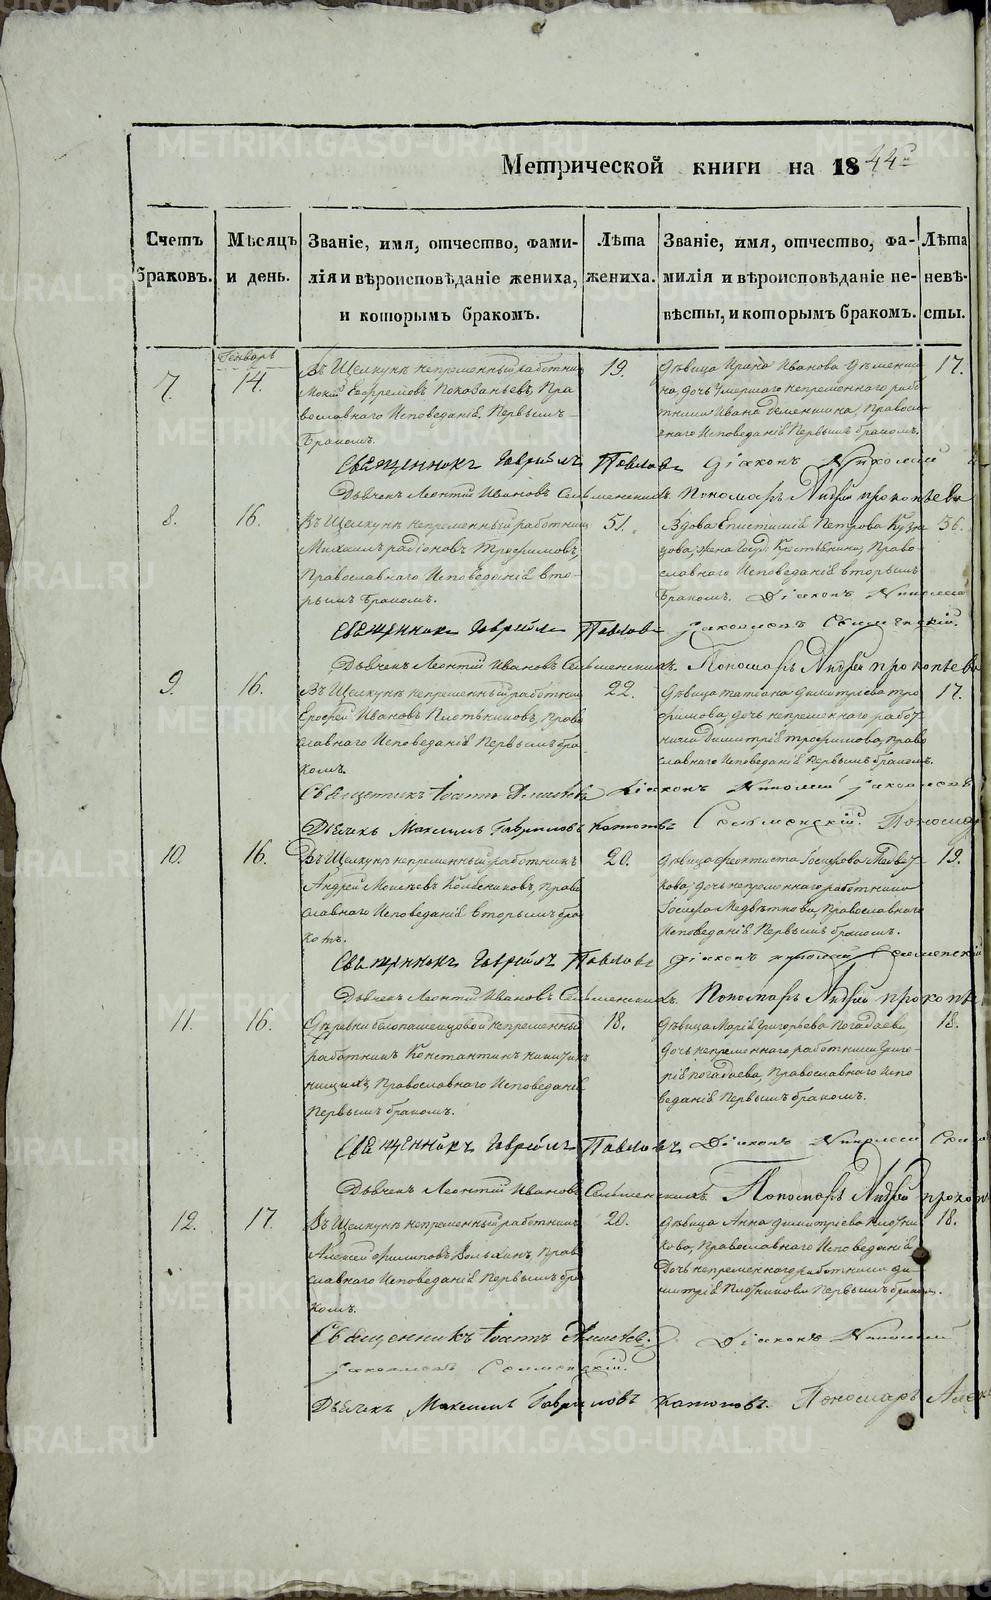 Метрической книги на 1844го
Счетъ браковъ.
Мѣсяцъ и день.
Званіе, имя, отчество, фами-
лія и вѣроисповѣданіе жениха,
и которымъ бракомъ.
Лѣта
жениха.
Званіе, имя, отчество, фа-
милія и вѣроисповѣданіе не-
вѣсты, и которымъ бракомъ.
Лѣта
невѣ-
сты.
Генварь
7.
14.
Въ Щелкунѣ непременный работник
Мокій Ефремовъ Показаньевъ, Пра
вославнаго Исповеданія. Первымъ
Бракомъ.
19.
Дѣвица Ирина Иванова Деменши
на, дочь умершаго непременнаго рабо
тника Ивана Деменшина, Правосла
внаго Исповеданія Первымъ бракомъ.
17.
Священникъ Гаврійлъ Павловъ Діаконъ Николай
Дьячекъ Леонтій Ивановъ Сельменскихъ Пономарь Андрей Прокопьевъ
8.
16.
Въ Щелкунѣ непременный работник
Михаилъ радіоновъ Трофимовъ,
Православнаго Исповеданія вто-
рымъ Бракомъ.
51.
Вдова Епистимія Петрова Кузне
цова, жена Госуд: Крестьянина, Право-
славнаго Исповеданія вторымъ
Бракомъ. Діаконъ Николай
36.
Священникъ Гаврійлъ Павловъ
Дьячекъ Леонтій Ивановъ Сельменскихъ. Пономарь Андрей прокопьевъ
9.
16.
Въ Щелкунѣ непременный работник
Ерофей Ивановъ Плотниковъ, Право
славнаго Исповеданія Первымъ бра-
комъ.
22.
Дѣвица Татіана Димитріева тро
фимова, дочь непременнаго работ
ника Димитрія трофимова, Право
славнаго Исповеданія Первымъ бракомъ.
17.
Священникъ Іоаннъ Діаконъ Николай
Дьячекъ Максимъ Гавриловъ Пономарь
10.
16.
Въ Щелкунѣ непременный работникъ
Андрей Моисѣевъ Колесниковъ, Право
славнаго Исповеданія вторымъ бра
комъ.
20.
Дѣвица феоктиста Іосифова Медвед
кова, дочь непременнаго работника
Іосифа Медвѣткова, Православнаго
Исповеданія Первымъ бракомъ.
19.
Священникъ Гаврійлъ Павловъ Діаконъ Николай
Дьячекъ Леонтій Ивановъ Сельменскихъ. Пономарь Андрей прокопье
11.
16.
Деревни белопашенцовой непременный
работникъ Константинъ
нищихъ, Православнаго Исповеданія
Первымъ бракомъ.
18.
Дѣвица Марія Григорьева Погадаева,
дочь непременнаго работника Григо-
рія погадаева, Православнаго Испо
веданія Первымъ бракомъ.
18.
Священникъ Гаврійлъ Павловъ Діаконъ Николай
Дьячекъ Леонтій Ивановъ Сельменскихъ. Пономарь Андрей прокоп
12.
17.
Въ Щелкунѣ непременный работникъ
Алексей филиповъ Вольхинъ, Право
славнаго Исповеданія Первымъ бра
комъ.
20.
Дѣвица Анна Димитріева Плотни
кова, Православнаго Исповеданія
Дочь непременнаго работника Ди-
митрія Плотникова Первымъ бракомъ.
18.
Священникъ Іоаннъ Діаконъ Николай
Дьячекъ Максимъ Гавриловъ Пономарь
METRIKI.GASO-URAL.RU